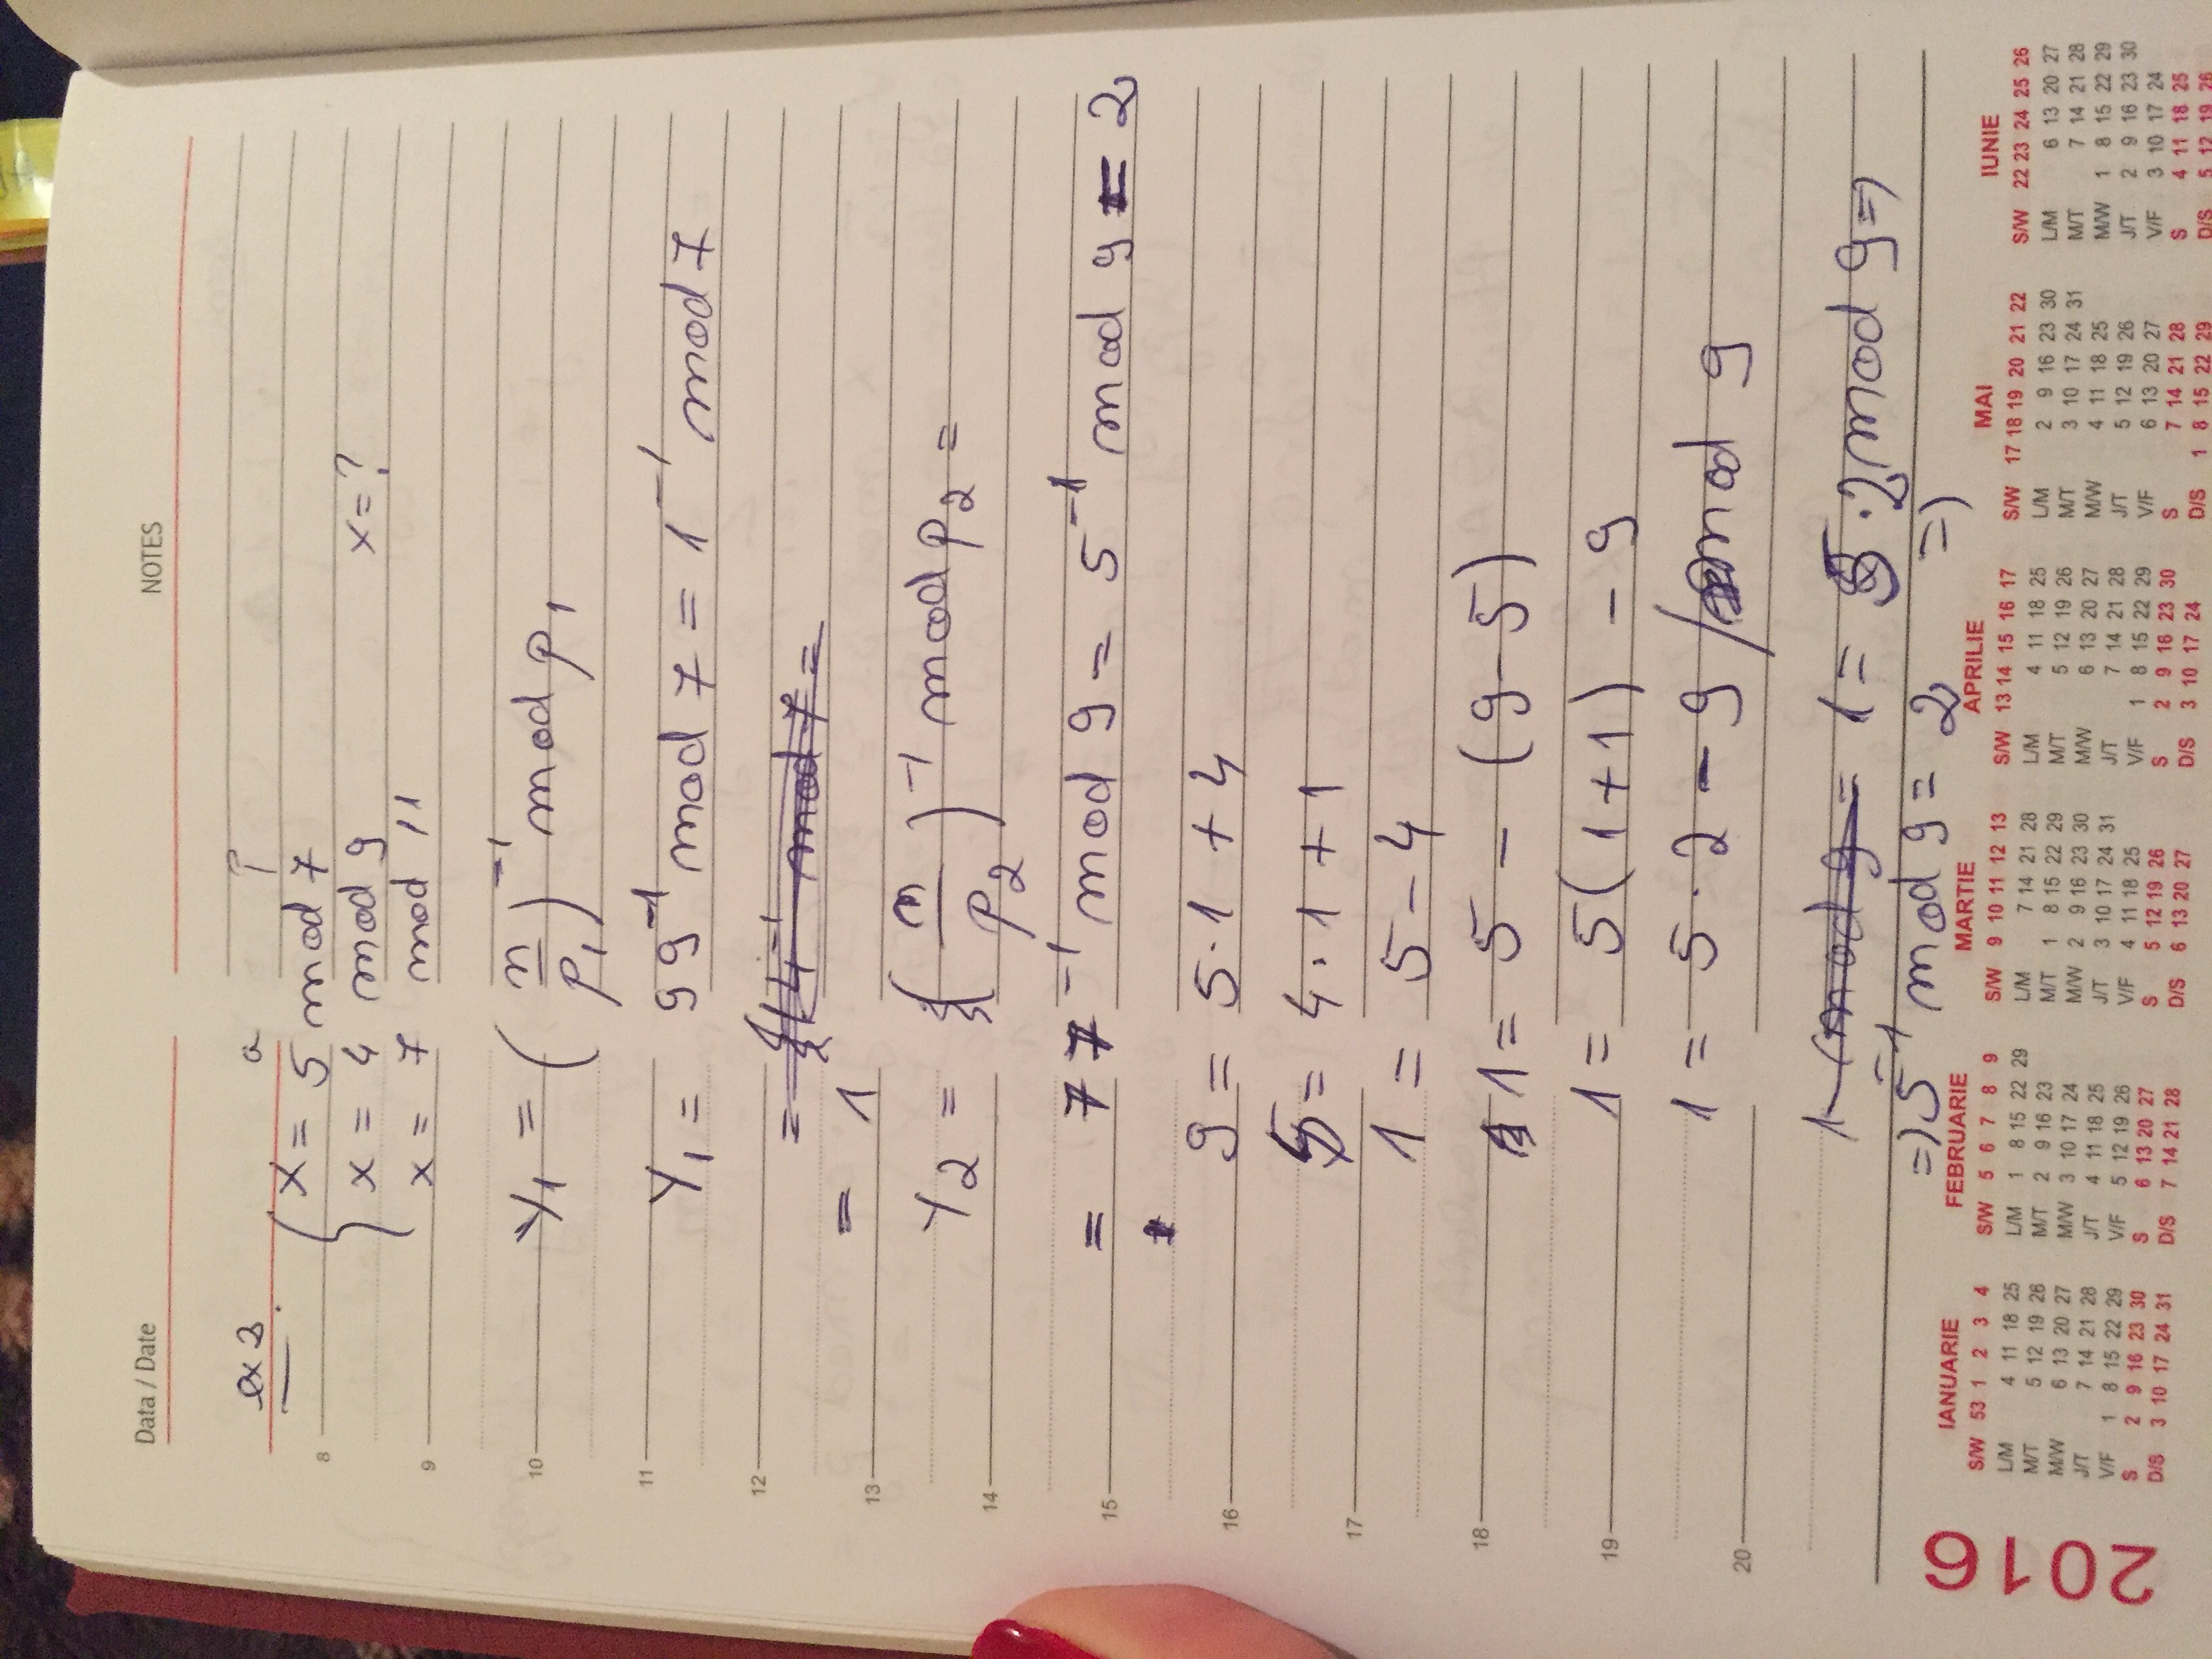 Data / Date
NOTES
ex 3.
a p
x = 5 mod 7
8
x = 4 mod 9 x = ?
x = 7 mod 11
9
Y1 = (n/p1)^-1 mod p1
10
11
Y1 = 99^-1 mod 7 = 1^-1 mod 7
12
= 14^-1 mod 7 =
= 1
13
Y2 = (n/p2)^-1 mod p2 =
14
= 77^-1 mod 9 = 5^-1 mod 9 = 2
15
9 = 5·1 + 4
16
5 = 4·1 + 1
17
1 = 5 - 4
18
1 = 5 - (9-5)
1 = 5(1+1) - 9
19
1 = 5·2 - 9 / mod 9
20
1 (mod 9 = 1 = 5·2 mod 9 =>
=> 5^-1 mod 9 = 2 =>
2016
IANUARIE
S/W 53 1 2 3 4
L/M 4 11 18 25
M/T 5 12 19 26
M/W 6 13 20 27
J/T 7 14 21 28
V/F 1 8 15 22 29
S 2 9 16 23 30
D/S 3 10 17 24 31
FEBRUARIE
S/W 5 6 7 8 9
L/M 1 8 15 22 29
M/T 2 9 16 23
M/W 3 10 17 24
J/T 4 11 18 25
V/F 5 12 19 26
S 6 13 20 27
D/S 7 14 21 28
MARTIE
S/W 9 10 11 12 13
L/M 7 14 21 28
M/T 1 8 15 22 29
M/W 2 9 16 23 30
J/T 3 10 17 24 31
V/F 4 11 18 25
S 5 12 19 26
D/S 6 13 20 27
APRILIE
S/W 13 14 15 16 17
L/M 4 11 18 25
M/T 5 12 19 26
M/W 6 13 20 27
J/T 7 14 21 28
V/F 1 8 15 22 29
S 2 9 16 23 30
D/S 3 10 17 24
MAI
S/W 17 18 19 20 21 22
L/M 2 9 16 23 30
M/T 3 10 17 24 31
M/W 4 11 18 25
J/T 5 12 19 26
V/F 6 13 20 27
S 7 14 21 28
D/S 1 8 15 22 29
IUNIE
S/W 22 23 24 25 26
L/M 6 13 20 27
M/T 7 14 21 28
M/W 1 8 15 22 29
J/T 2 9 16 23 30
V/F 3 10 17 24
S 4 11 18 25
D/S 5 12 19 26